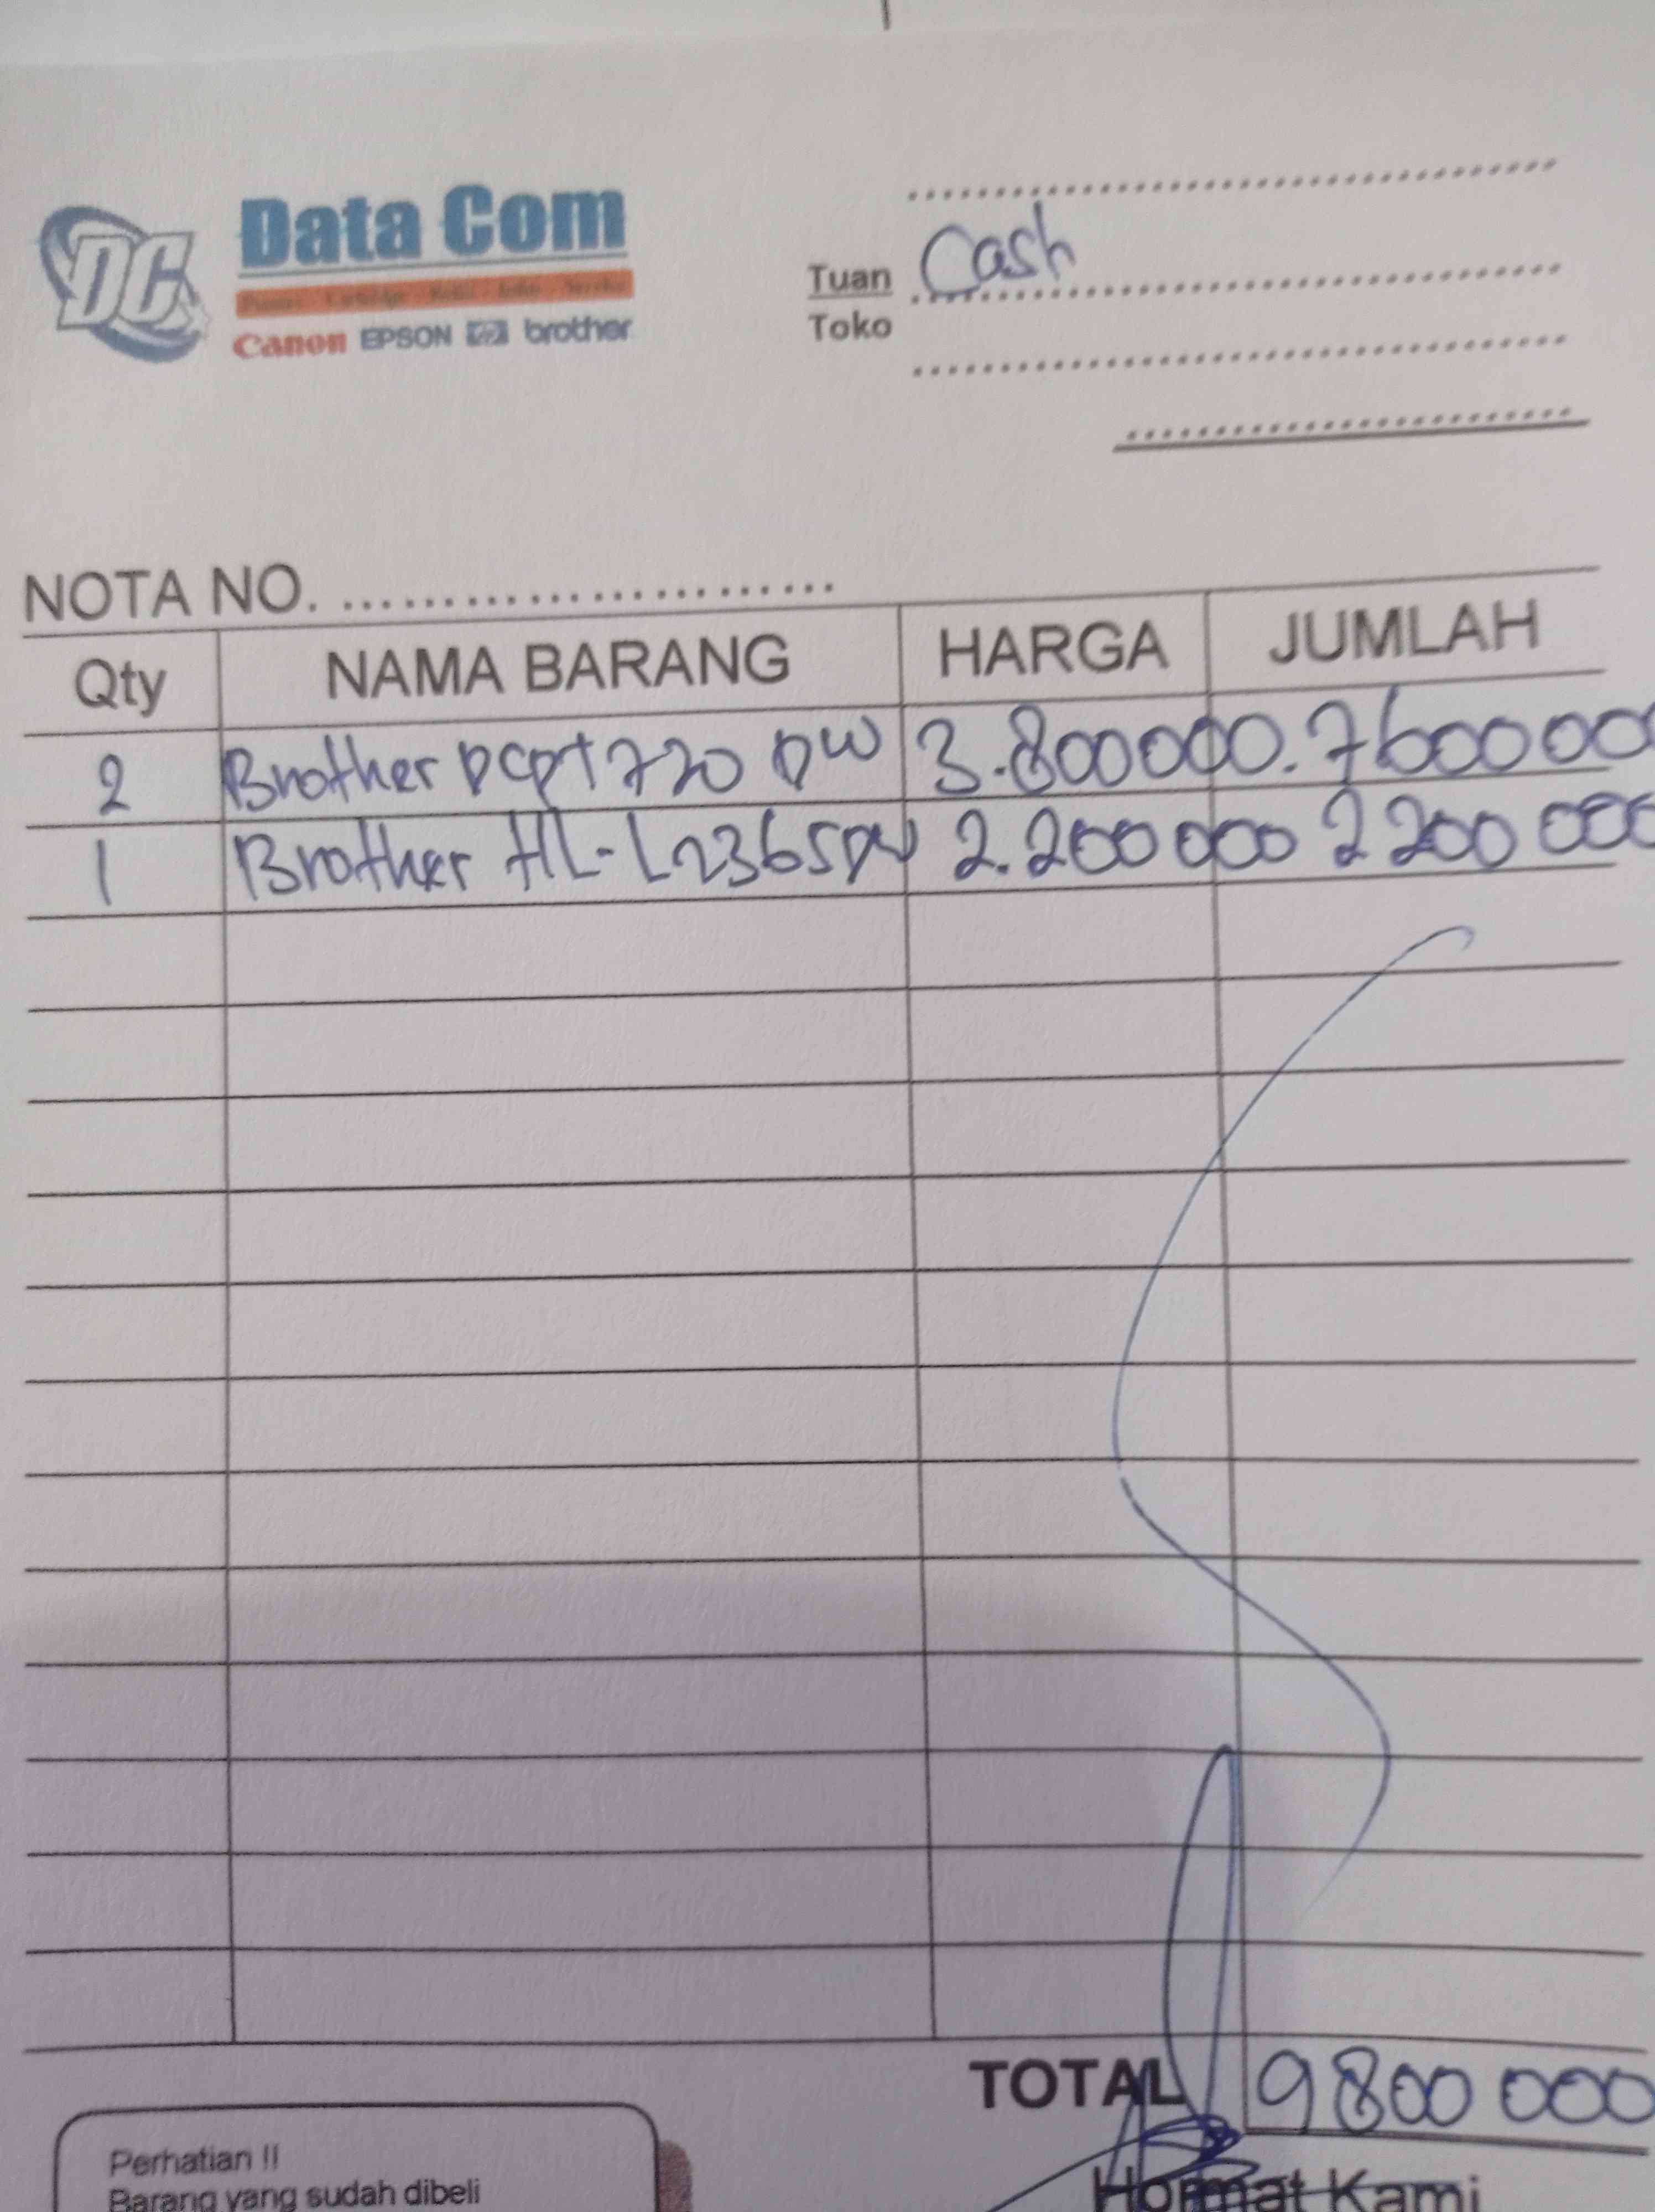 DC
Data Com
Canon EPSON hp brother
Tuan Cash
Toko
NOTA NO. ........................
Qty NAMA BARANG HARGA JUMLAH
2 Brother DCPT 720 DW 3.800000. 7600000
1 Brother HL-L2365DW 2.200 000 2 200 000
TOTAL 9800 000
Hormat Kami
Perhatian !!
Barang yang sudah dibeli